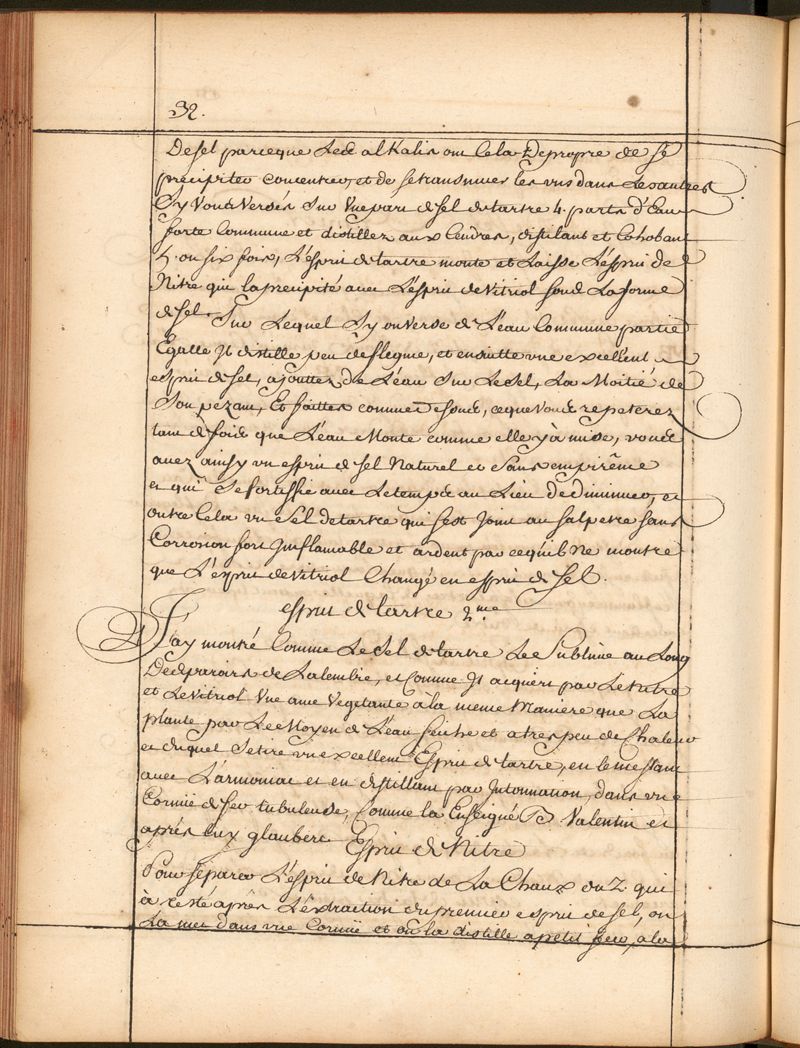 32.
De sel parceque Les alKalis ont Cela De propre de se
precipiter concentrer, et de se transmuer les uns dans Les autres
Sy Vous Versés Sur Une part de sel de tartre 4. parts d'Eau
forte Commune et distillez aux Cendres, distilant et Cohobant
5. ou six fois, L'esprit de tartre monte et Laisse L'esprit de
Nitre qui la precipité avec L'esprit de Vitriol sous La forme
de sel. Sur Lequel Sy on Verse de L'eau Commune partie
Egalle Il distille peu de flegme, et ensuitte une excellent
esprit de sel, ajouttez De L'eau Sur Le sel, La Moitié de
Son pezant, Et faittes comme dessus, ceque Vous repeterez
tant de fois que L'eau Monte comme elle y à mise, vous
avez ainsy un esprit de sel Naturel et Sans empirême
et qui Se fortiffie avec Le temps au Lieu de diminuer, et
outre Cela un Sel de tartre qui s'est Joint au salpetre sans
Corrosion fort Inflamable et ardent par ce qu'il Ne montre
que L'esprit de Vitriol Changé en esprit de Sel.
esprit de tartre 2.me
J'ay montré Comme Le Sel de tartre Se Sublime au Long
Des parois de Lalembic, et Comme Il acquiert par Le Nitre
et Le Vitriol Une ame Vegetante à la meme Maniere que La
plante par Le Moyen de L'eau seiche et a tres peu de Chaleur
et duquel Se tire un excellent Esprit de tartre, en le meslant
avec L'armoniac et en distillant par Intonnation, dans une
Cornüe de fer tubuleuse, Comme la Enseigné B. Valentin et
aprés Luy glauber. Esprit de Nitre
Pour Séparer L'esprit de Nitre de La Chaux ou Z qui
à resté aprés L'extraction du premier esprit de sel, on
La met dans une Cornüe et on la distille a petit feu, a la